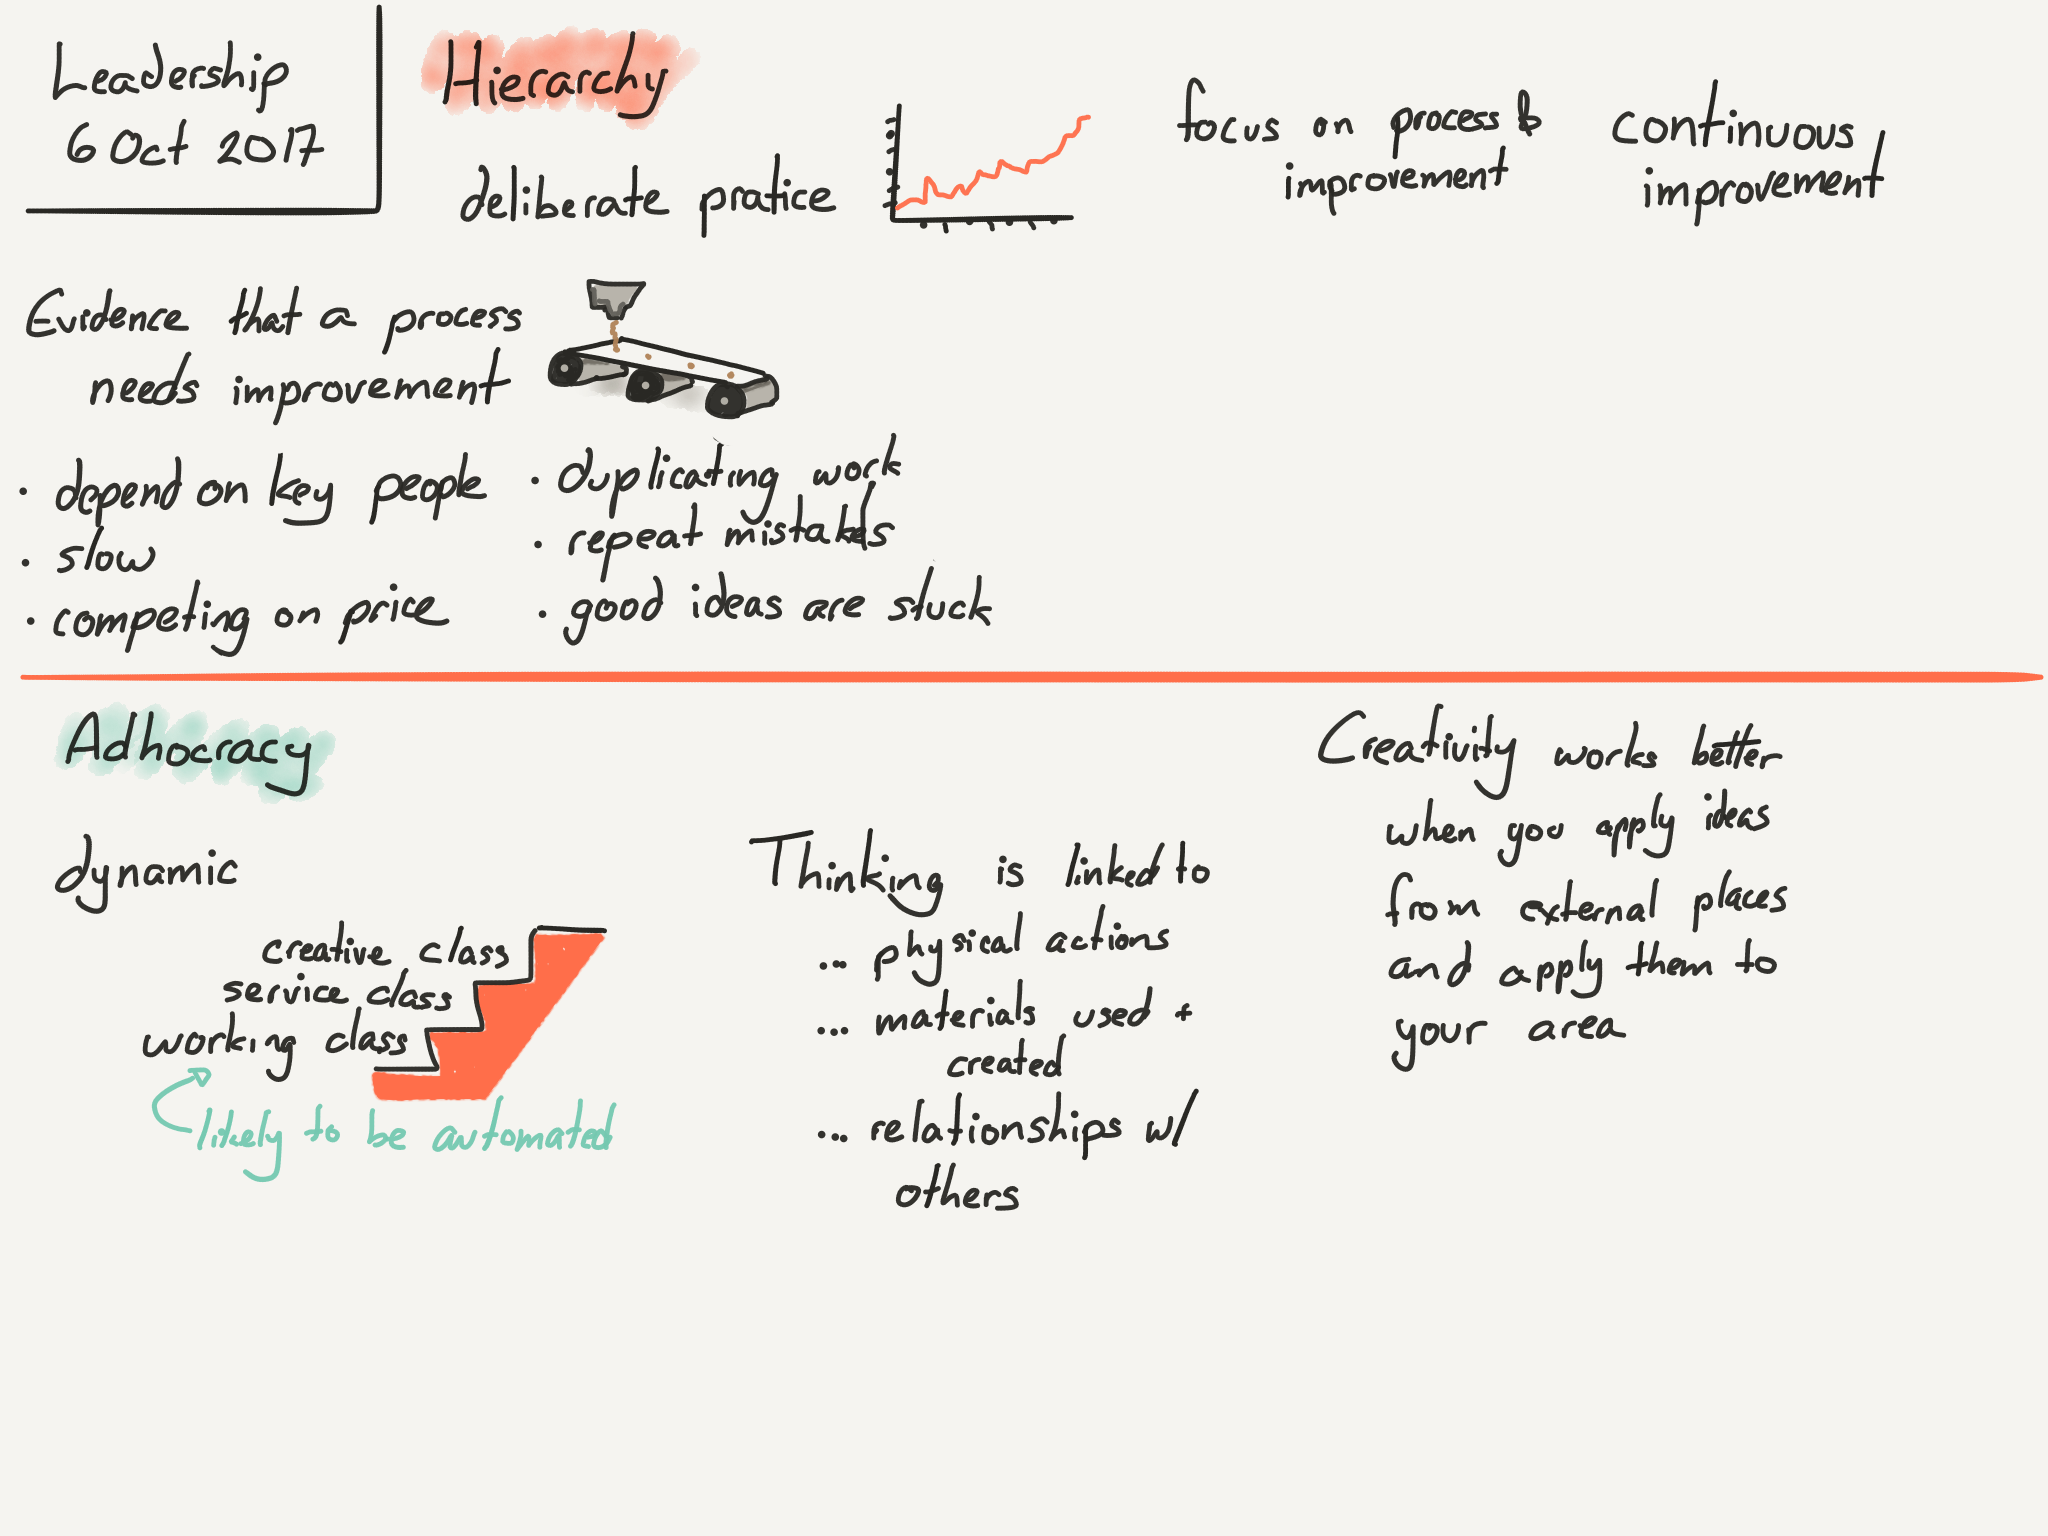 Leadership
6 Oct 2017
Hierarchy
deliberate pratice
focus on process &
improvement
continuous
improvement
Evidence that a process
needs improvement
· depend on key people
· slow
· competing on price
· duplicating work
· repeat mistakes
· good ideas are stuck
Adhocracy
dynamic
creative class
service class
working class
likely to be automated
Thinking is linked to
... physical actions
... materials used +
created
... relationships w/
others
Creativity works better
when you apply ideas
from external places
and apply them to
your area